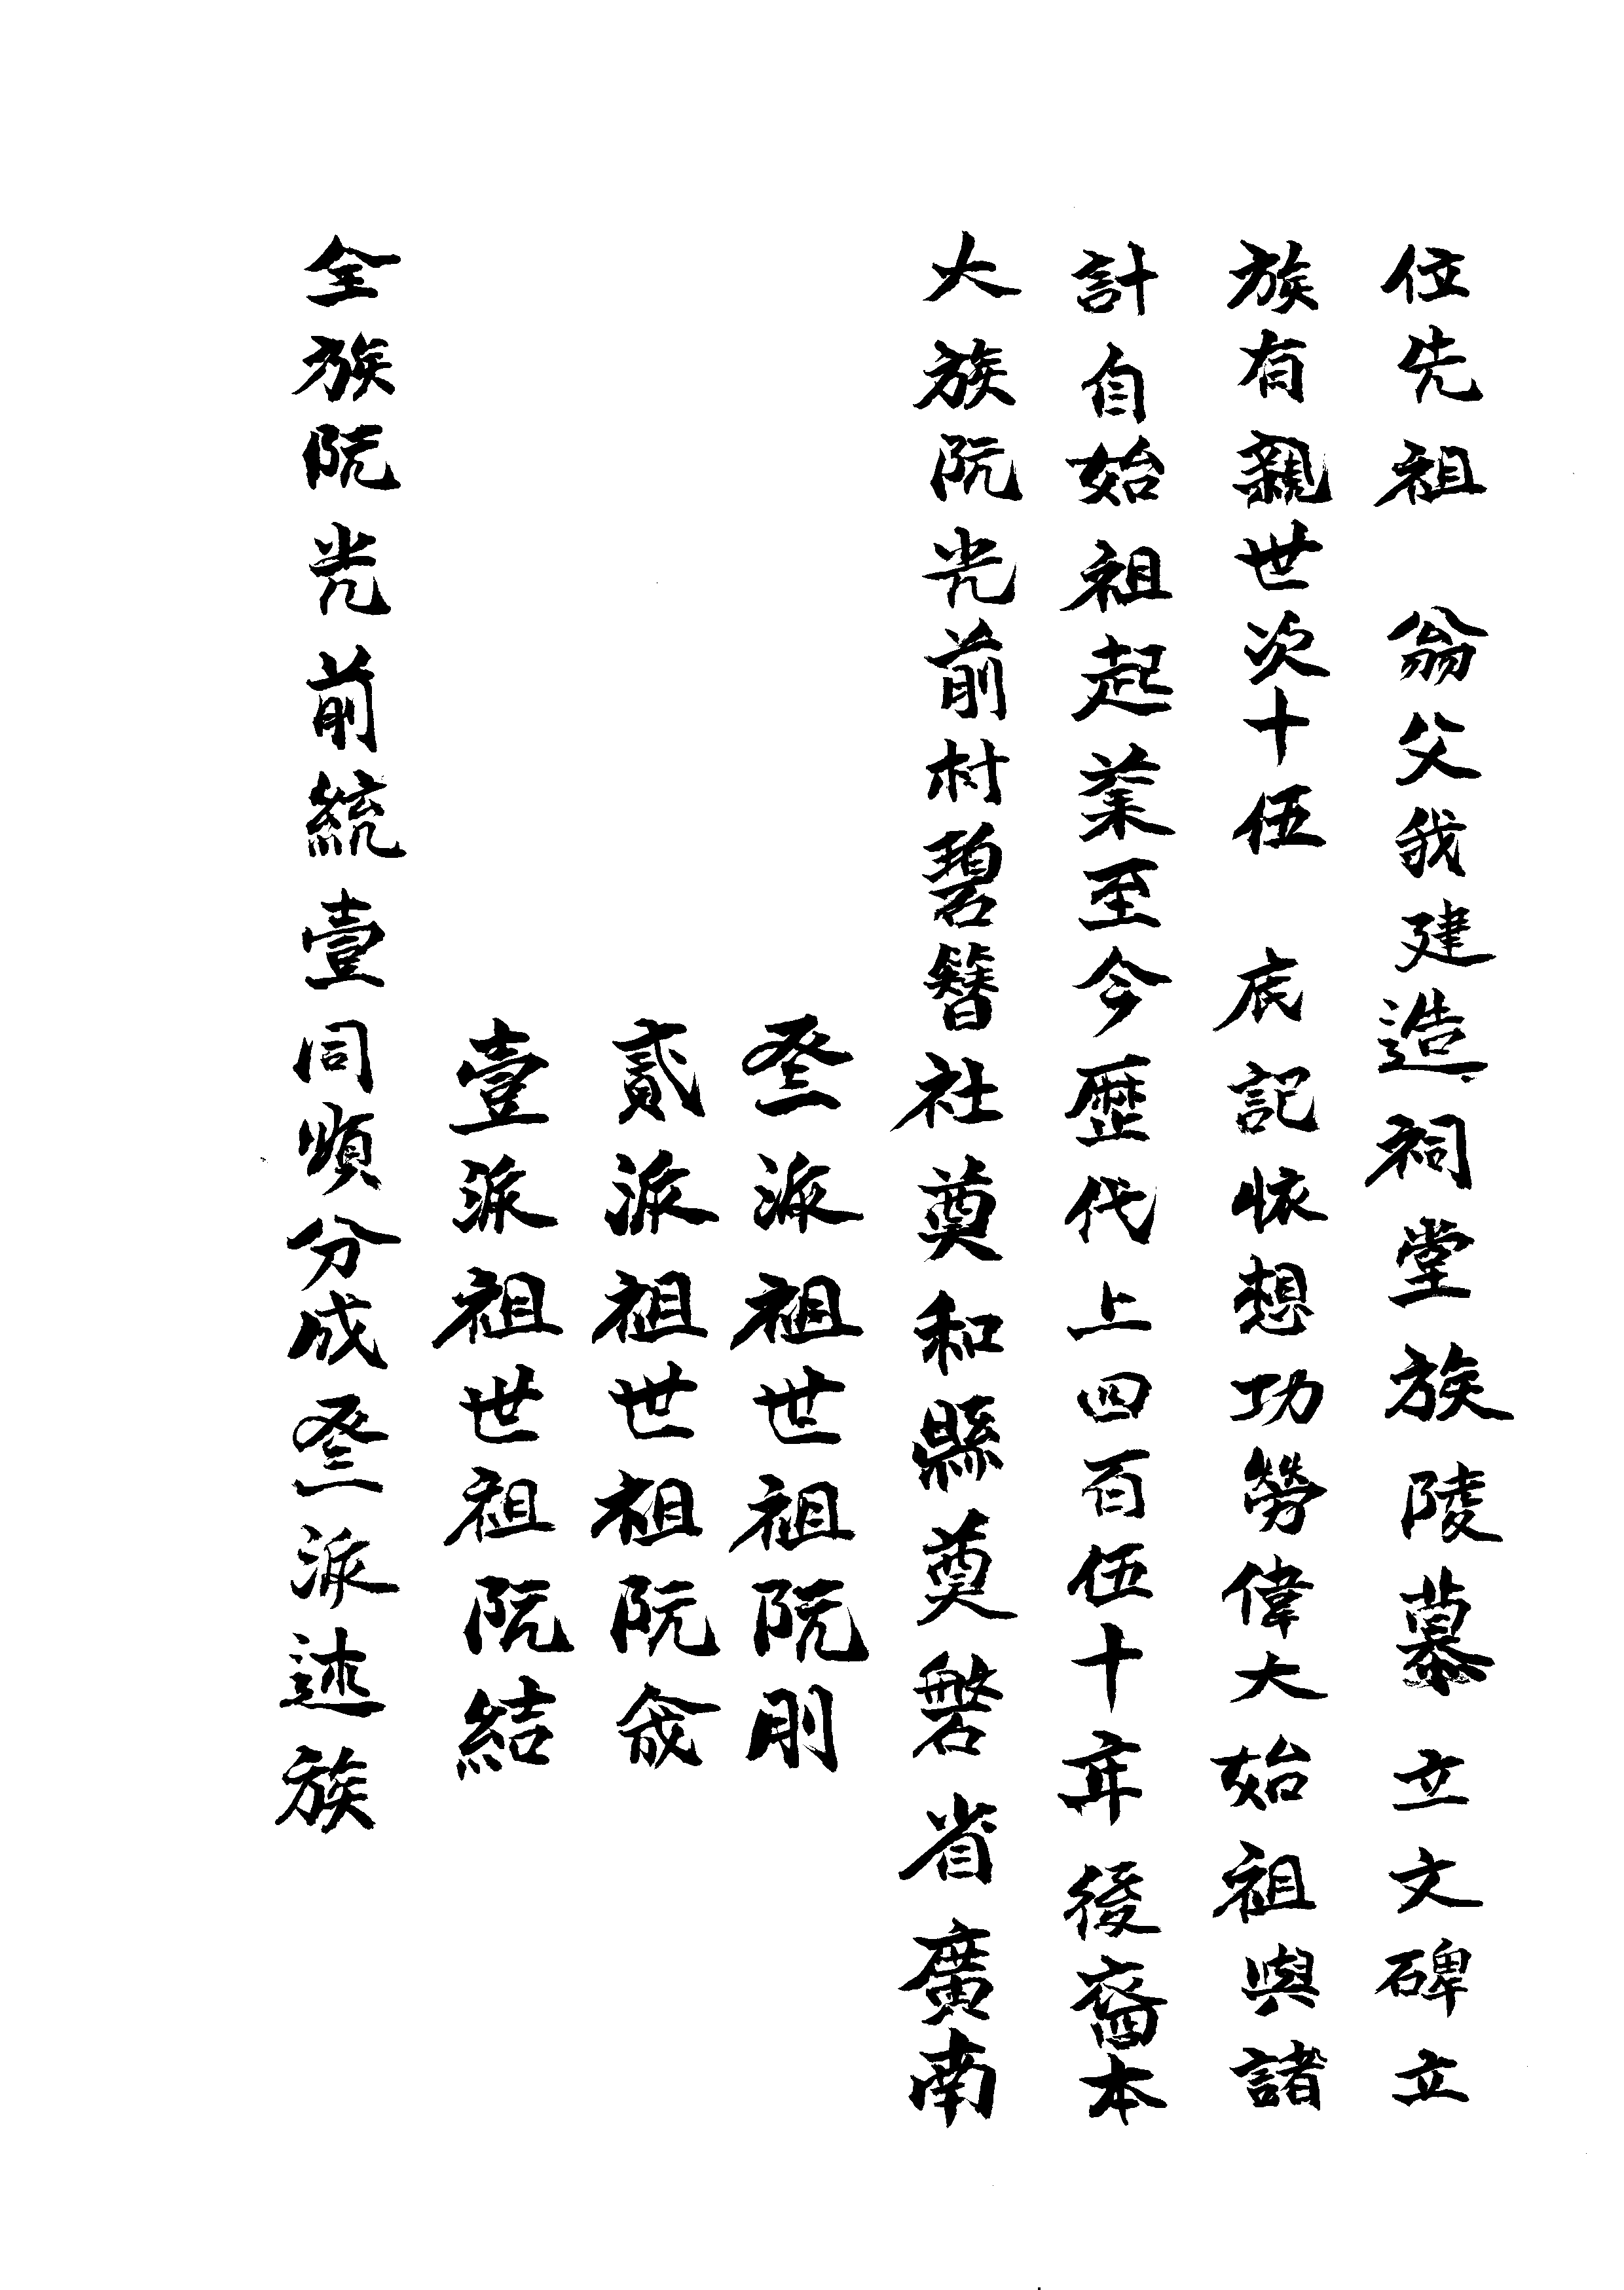 全族阮光前統壹同順分成叁派述族
壹派祖世祖阮結
貳派祖世祖阮
叁派祖世祖阮刖
大族阮光前村碧簪社奠和縣奠磐省廣南
計自始祖起業至今歷代上四百伍十年後裔本
族有親世次十伍 底記想功勞偉大始祖與諸
位先祖 翁父我建造祠堂族陵慕立文碑立